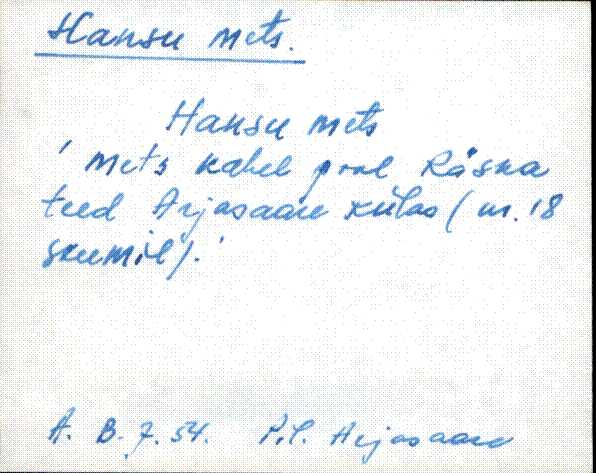 Hansu mets.
Hansu mets
' mets kahel pool Räsna
teed Arjasaare külas (nr. 18
skeemil).'
A. B. 7. 54. P.l. Arjasaare